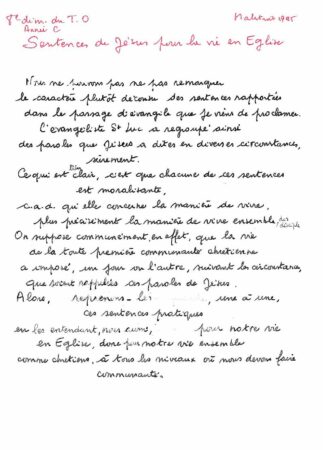 8e dim. du T.O
Année C
Sentences de Jésus pour la vie en Eglise
Nous ne pouvons pas ne pas remarquer
le caractère plutôt décousu des sentences rapportées
dans le passage d'évangile que je viens de proclamer.
L'évangéliste St Luc a regroupé ainsi
des paroles que Jésus a dites en diverses circonstances,
sûrement.
Ce qui est bien clair, c'est que chacune de ces sentences
est moralisante,
c.a.d. qu'elle concerne la manière de vivre,
plus précisément la manière de vivre ensemble, des disciples
On suppose communément, en effet, que la vie
de la toute première communauté chrétienne
a imposé, un jour ou l'autre, suivant les circonstances,
que soient rappelées ces paroles de Jésus.
Alors, reprenons-les une à une,
ces sentences pratiques
en les entendant, nous aussi, pour notre vie
en Eglise, donc pour notre vie ensemble
comme chrétiens, à tous les niveaux où nous devons faire
communauté.